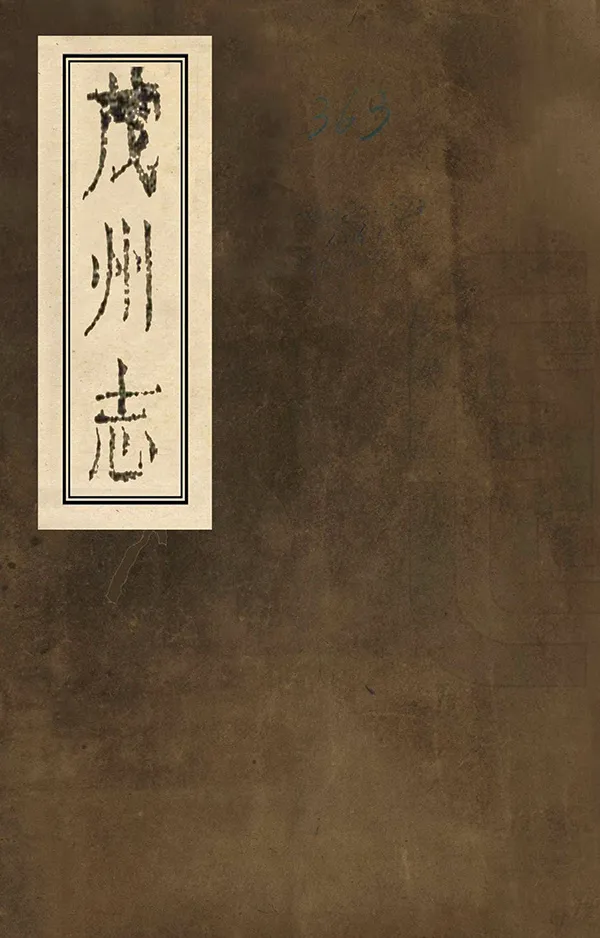 茂州志
363